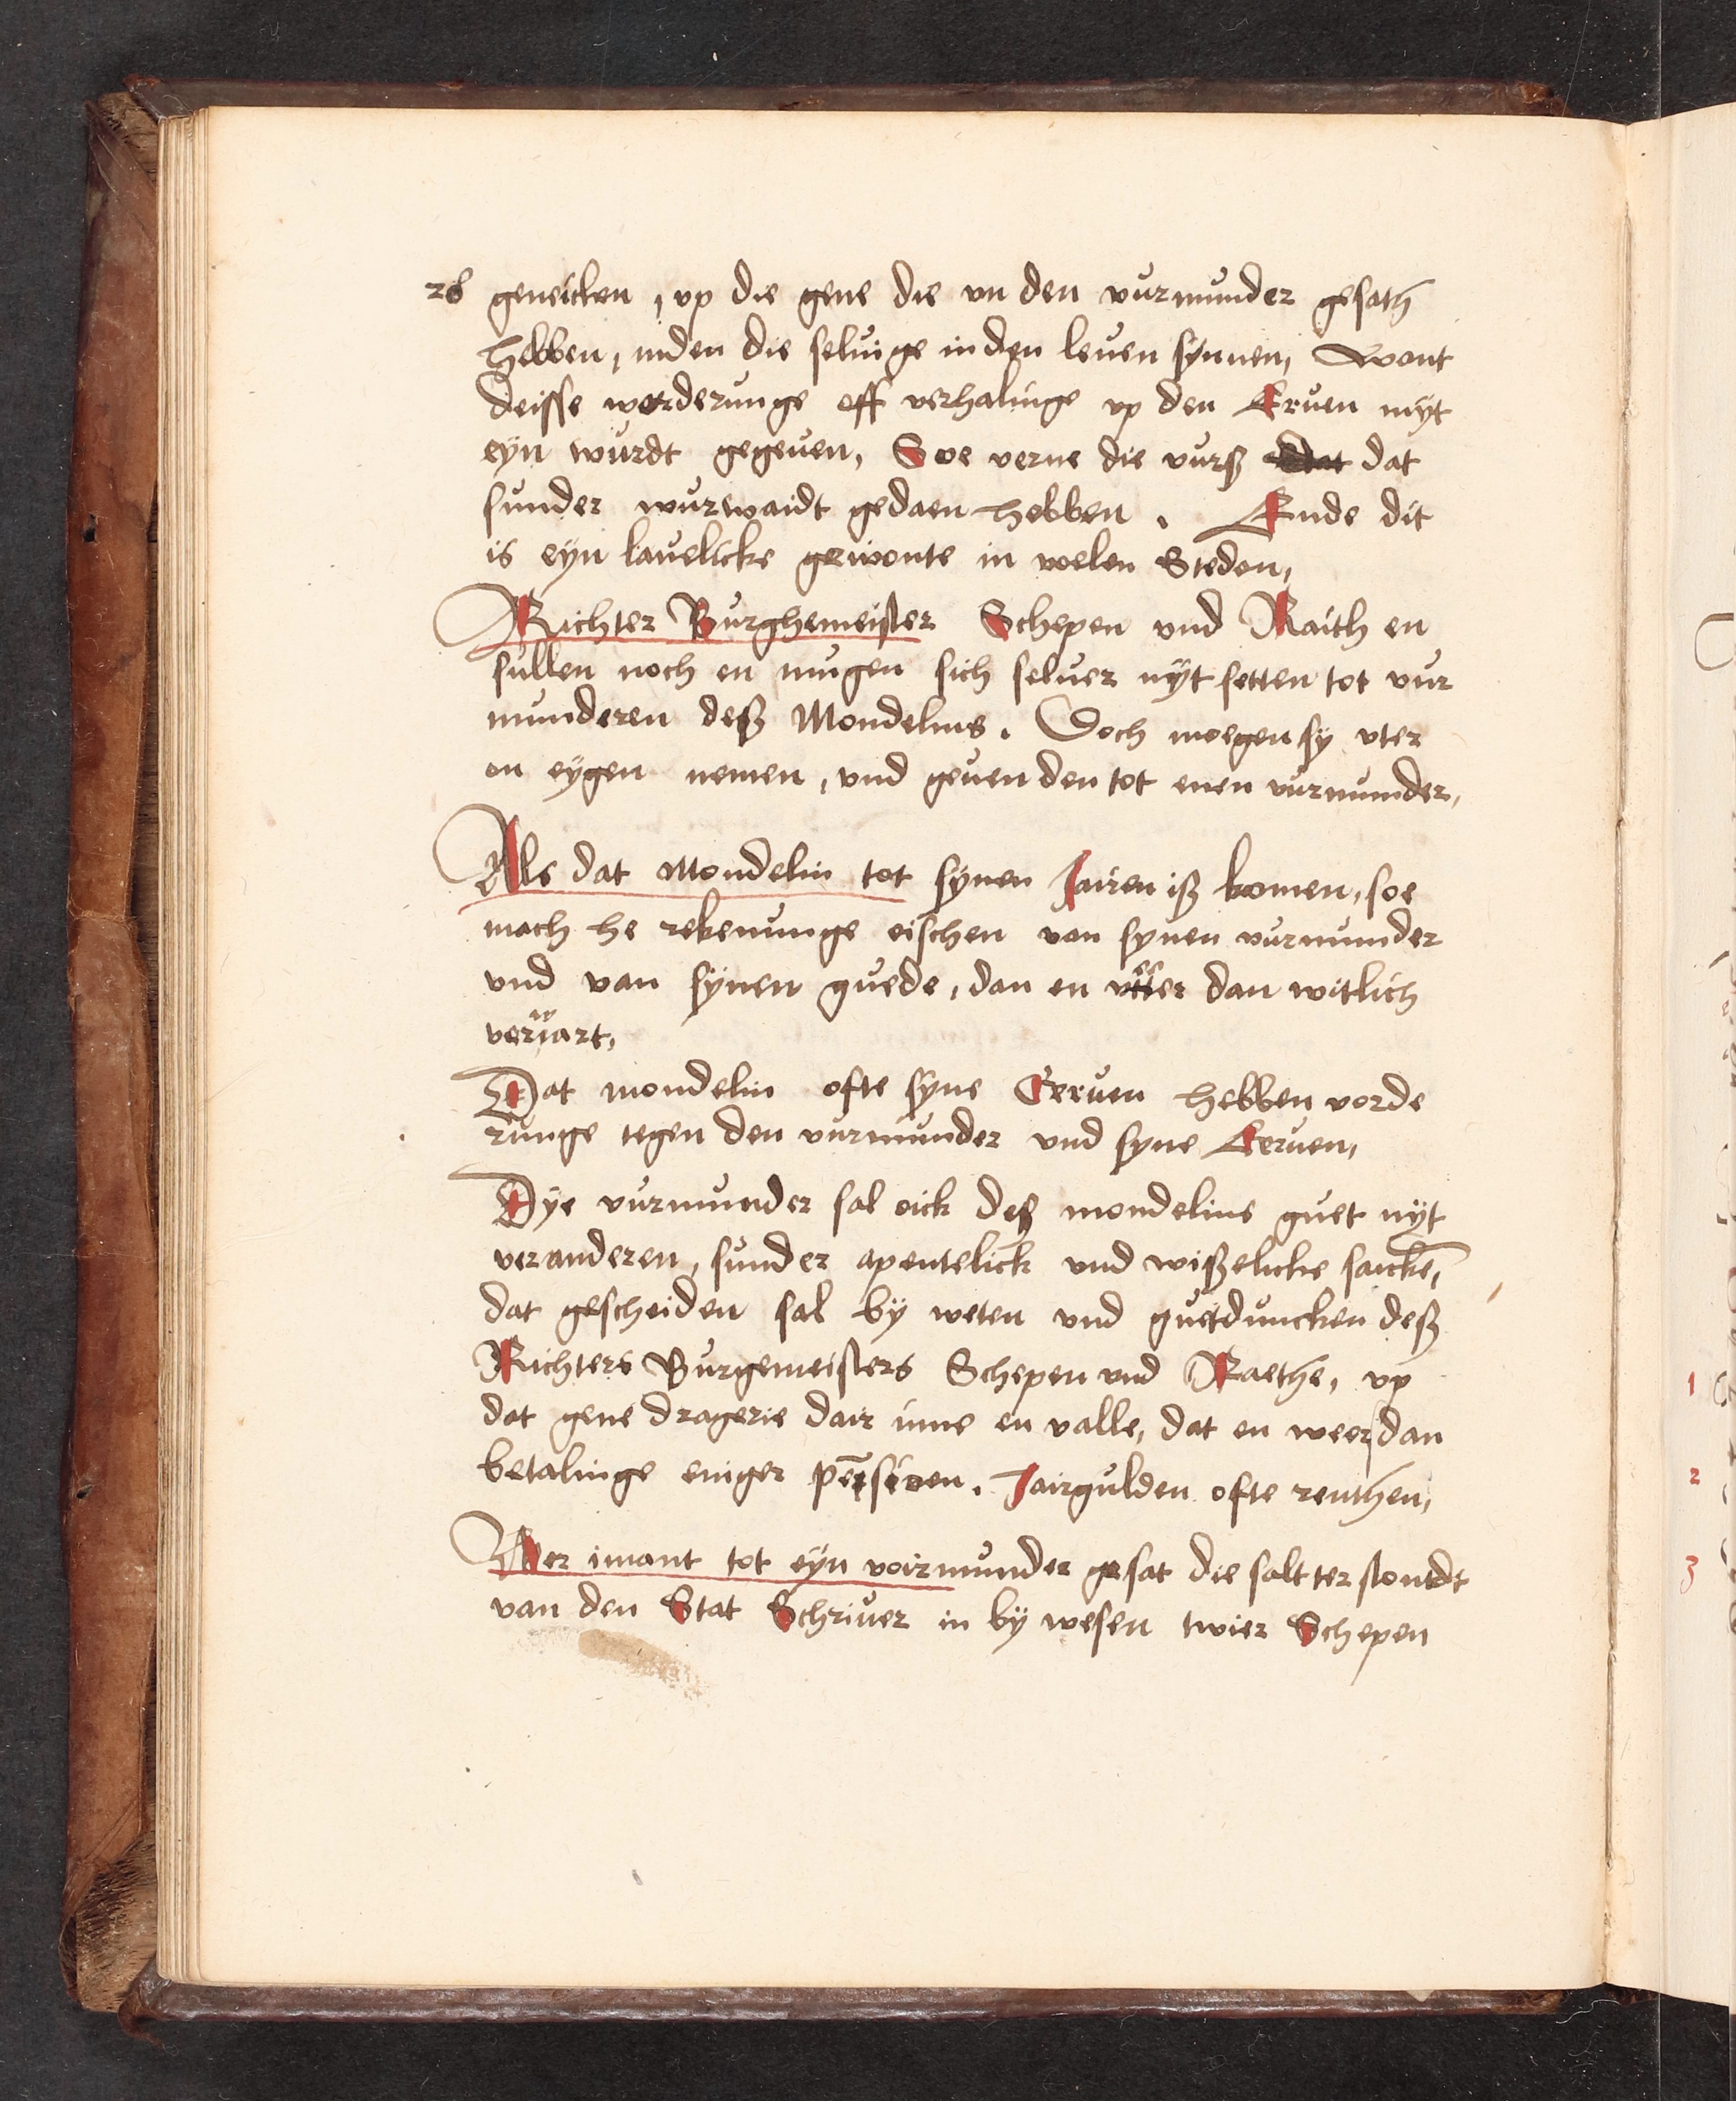 28 geneicken, vp die gene die vn den vurmunder gesath
hebben, inden die seluige in den leuen synnen, Want
deisse worderunge off verhalinge vp den Eruen nyt
eyn wurdt gegeuen, Soe verne die vurß dat
sunder vurwaidt gedaen hebben. Ende dit
is eyn lauelicke gewonte in voelen Steden,
Richter Burghemeister Schepen vnd Raith en
sullen noch en mugen sich seluer nyt setten tot vur
munderen deß Mondelins. Doch moegen sy vter
on eygen nemen, vnd geuen den tot enen vurmunder,
Als dat Mondelin tot synen Jairen iß komen, soe
mach he rekenunge eischen van synen vurmunder
vnd van synen guede, dan en vtter dan witlich
veriart,
Dat mondelin ofte syne Erruen hebben vorde
runge tegen den vurmunder vnd syne Erruen,
Dye vurmunder sal oick deß mondelins guet nyt
veranderen, sunder apentelick vnd wißelicke saickē,
dat gescheiden sal by weten vnd guetduncken deß
Richters Burgemeisters Schepen vnd Raethe, vp
dat gene dragerie dair inne en valle, dat en weer dan
betalinge eniger pēsioen. Jairgulden ofte renthen,
Wer imant tot eyn voirmunder gesat die salt ter stondt
van den Stat Schriuer in by wesen twier Schepen
1
2
3